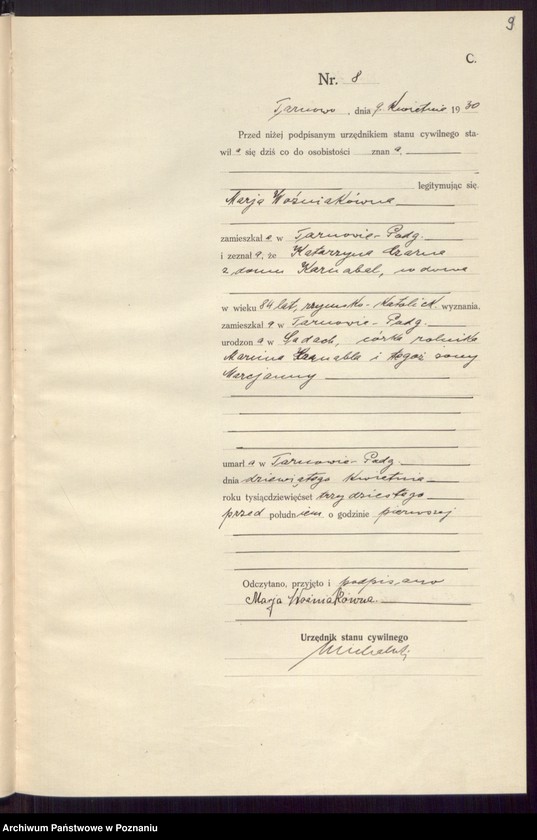 9
C.
Nr. 8
Tarnowo, dnia 9. Kwietnia 1930
Przed niżej podpisanym urzędnikiem stanu cywilnego sta-
wił a się dziś co do osobistości znan a,
legitymując się.
Marja Woźniakówna
zamieszkał a w Tarnowie-Podg.
i zeznał a, że Katarzyna Czarna
z domu Karnabel, wdowa
w wieku 84 lat, rzymsko-katolick. wyznania.
zamieszkał a w Tarnowie-Podg.
urodzon a w Sadach, córka rolnika
Marcina Karnabla i tegoż żony
Marcjanny
umarł a w Tarnowie-Podg.
dnia dziewiątego Kwietnia
roku tysiącdziewięćset trzydziestego
przed południem o godzinie pierwszej
Odczytano, przyjęto i podpisano
Marja Woźniakówna.
Urzędnik stanu cywilnego
Archiwum Państwowe w Poznaniu